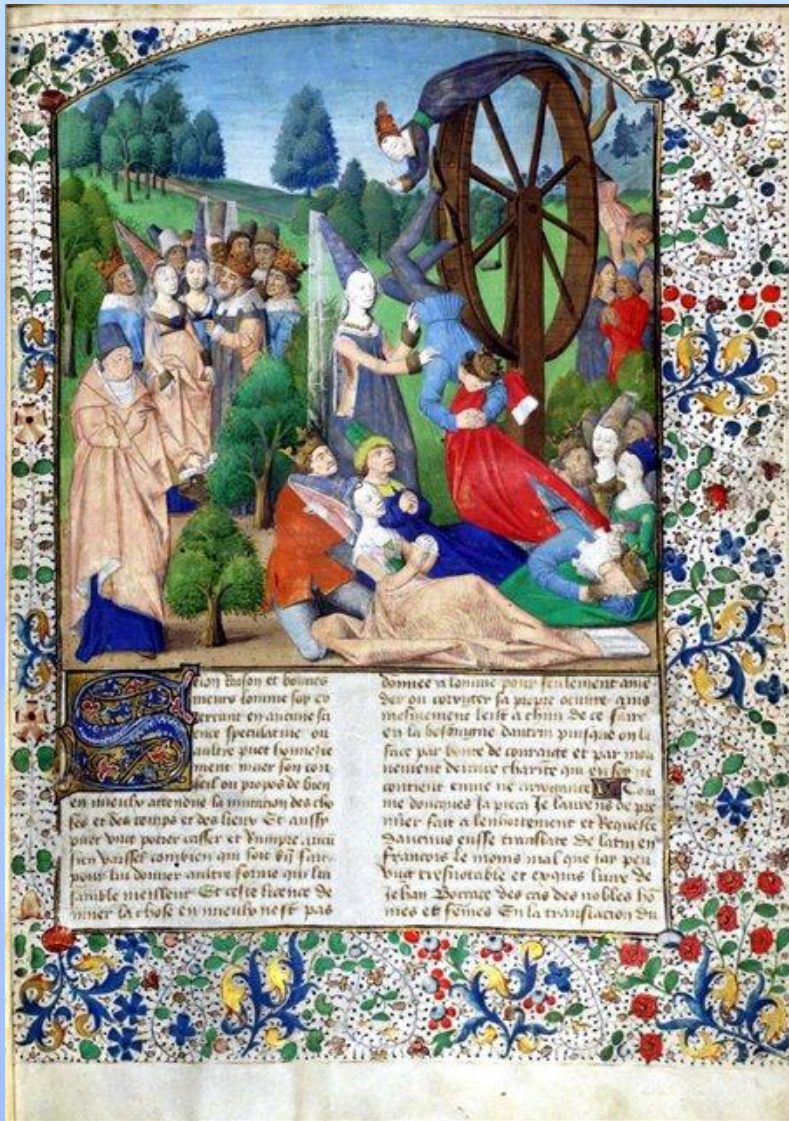 Selon raison et bonnes
meurs lomme soy ex
ercant en aucune sci
ence speculative ou
aultre puet honneste
ment muer son con
seil ou propos de bien
en mieulx attendue la mutation des cho
ses et des temps et des lieux Et aussy
puet ung potier casser et rompre aucun
sien vaissel combien quil soit bien fait
pour lui donner aultre forme qui lui
samble meilleur Et ceste licence de
muer la chose en mieulx nest pas
donnee a lomme pour seulement amen
der ou corriger sa propre oeuvre ains
mesmement leist a chun de ce faire
en la besoingne dautrui puisque on la
face par bonte de couraige et par mou
vement de vraie charite qui en soy ne
contient envie ne arrogance Com
me doncques ja pieca Je laurens de pre
mier fait a lenhortement et Requeste
daucuns eusse translate de latin en
francois le moins mal que jay peu
ung tresnotable et exquis livre de
Jehan Boccace des cas des nobles ho
mes et femes En la translacion du